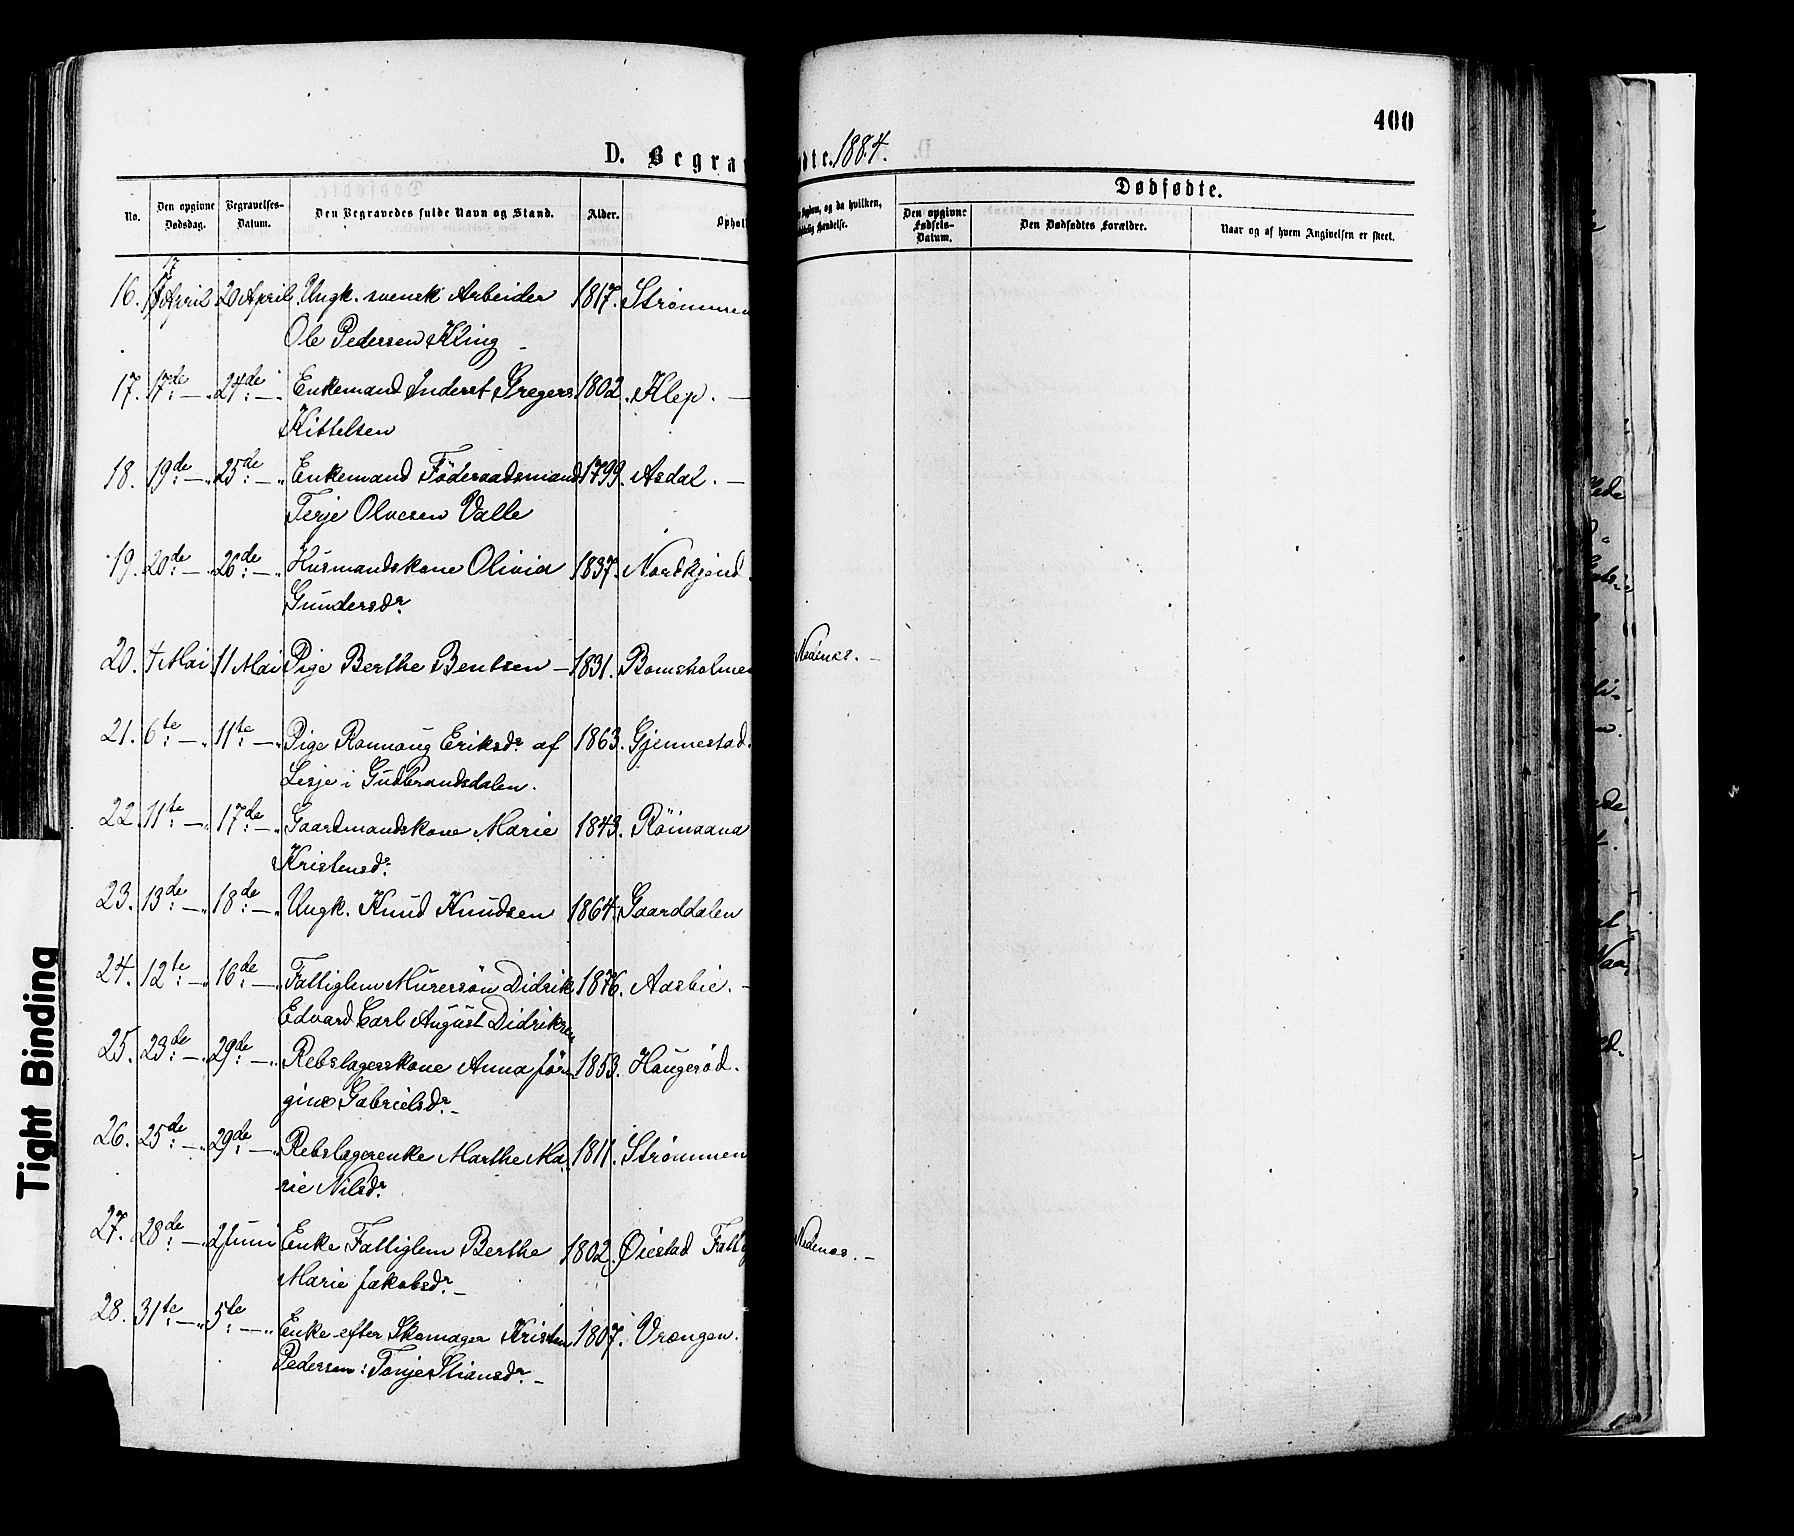 400
D. Begra
dte. 1884.
No. Den opgivne Dødsdag. Begravelses-Datum. Den Begravedes fulde Navn og Stand. Alder. Ophol
Sygdom, og da hvilken,
Hændelse.
Dødfødte.
Den opgivne Fødsels-Datum. Den Dødfødtes Forældre. Naar og af hvem Angivelsen er skeet.
17
16. April 20 April Ungk. svensk Arbeider 1817. Strømmen
Ole Pedersen Kling
17. 17de — 24de — Enkemand Inderst Gregers 1802. Klep. —
Kittelsen
18. 19de — 25de — Enkemand Föderaadsmand 1799. Asdal. —
Terje Olvesen Valle
19. 20de — 26de — Husmandskone Olivia 1837. Nordkjend.
Gundersdr.
20. 4 Mai 11 Mai Pige Berthe Bentsen — 1831. Bomsholmen
Nedenes. —
21. 6te — 11te — Pige Ronnaug Eriksdr. af 1863. Gjennestad.
Lesje i Gudbrandsdalen.
22. 11te — 17de — Gaardmandskone Marie 1843. Röinaana
Kristensdr.
23. 13de — 18de — Ungk. Knud Knudsen 1864. Gaarddalen
24. 12te — 16de — Fattiglem Murersön Didrik 1876. Aasbie. —
Edvard Carl August Didriksen
25. 23de — 29de — Rebslagerskone Anna Jör- 1853. Haugerød.
gine Gabrielsdr. —
26. 25de — 29de — Rebslagerenke Marthe Ma- 1811. Strømmen
rie Nilsdr.
27. 28de — 2 Juni Enke Fattiglem Berthe 1802. Øiestad Fattig
Marie Jakobsdr. —
Nedenes. —
28. 31te — 5te — Enke efter Skomager Kristen 1807. Vrengen.
Pedersen: Tonje Stiansdr. —
Tight Binding